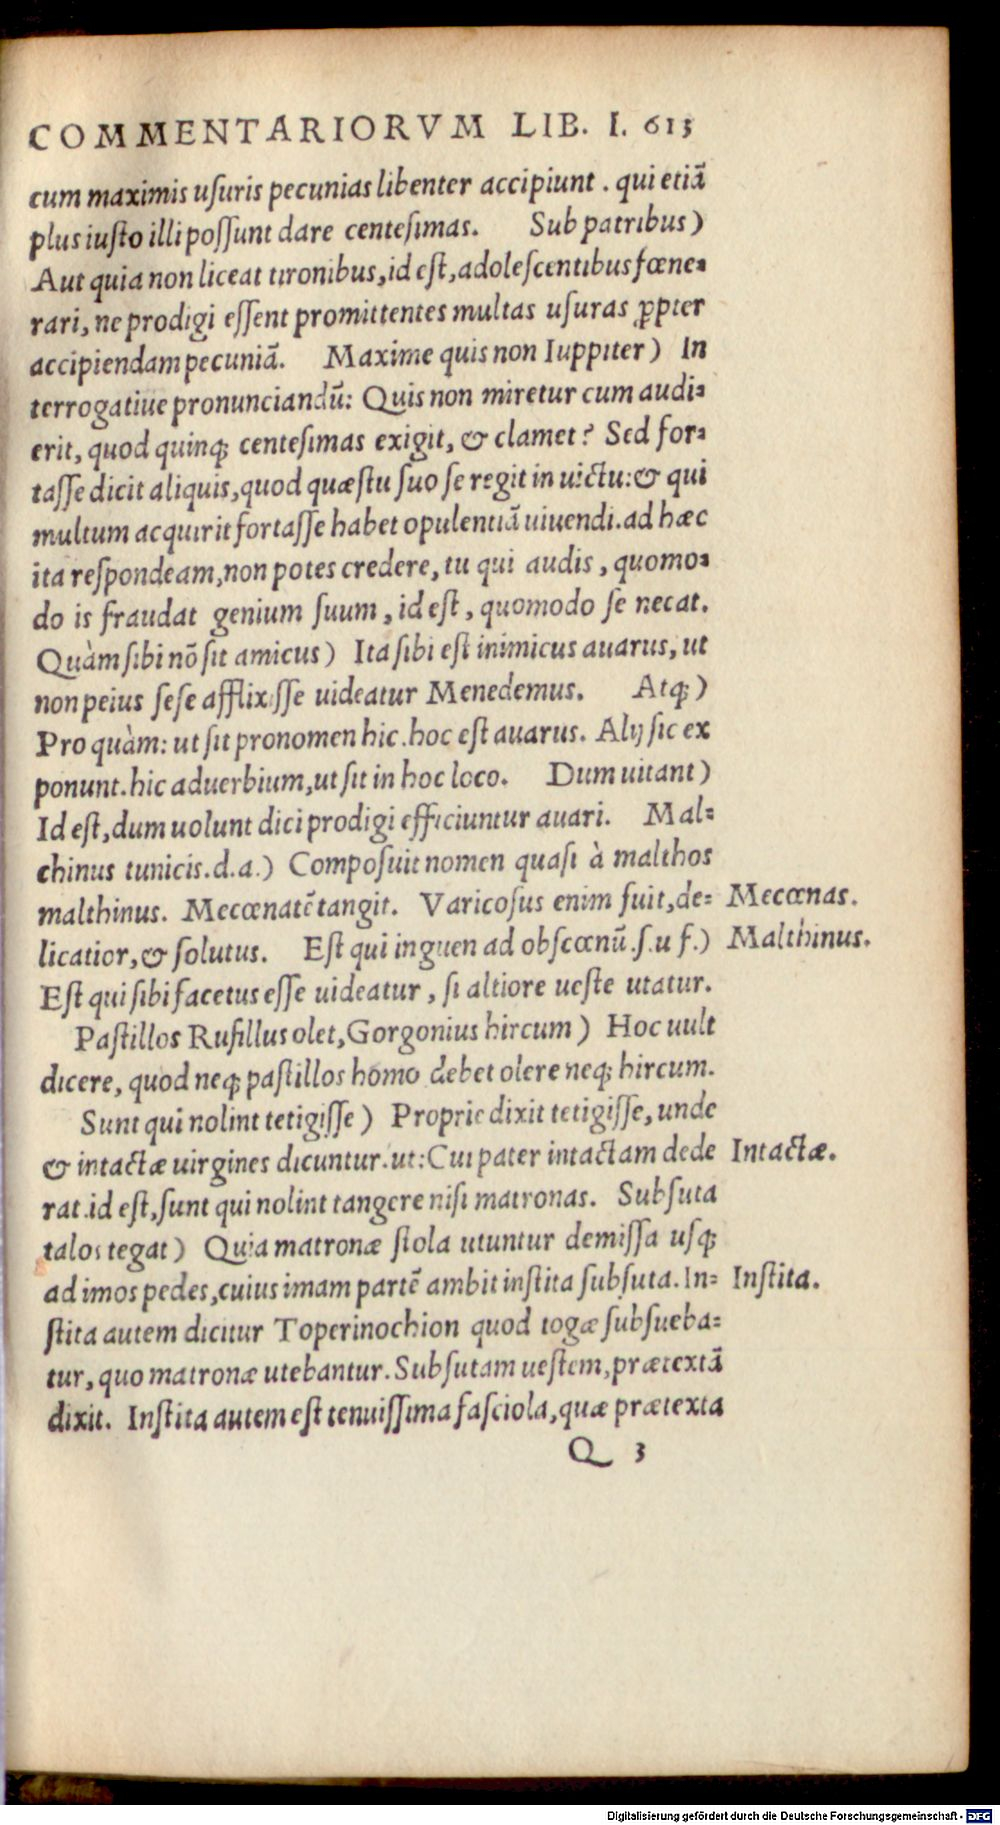 COMMENTARIORVM LIB. I. 613
cum maximis uſuris pecunias libenter accipiunt . qui etiã
plus iuſto illi poſſunt dare centeſimas. Sub patribus)
Aut quia non liceat tironibus, id eſt, adoleſcentibus fœne⸗
rari, ne prodigi eſſent promittentes multas uſuras ꝓpter
accipiendam pecuniã. Maxime quis non Iuppiter) In
terrogatiue pronunciandũ: Quis non miretur cum audi⸗
erit, quod quinqꝫ centeſimas exigit, & clamet? Sed for⸗
taſſe dicit aliquis, quod quæſtu ſuo ſe regit in uictu: & qui
multum acquirit fortaſſe habet opulentiã uiuendi. ad hæc
ita reſpondeam, non potes credere, tu qui audis, quomo⸗
do is fraudat genium ſuum, id eſt, quomodo ſe necat.
Quàm ſibi nõ ſit amicus) Ita ſibi eſt inimicus auarus, ut
non peius ſeſe afflixiſſe uideatur Menedemus. Atqꝫ)
Pro quàm: ut ſit pronomen hic. hoc eſt auarus. Alij ſic ex
ponunt. hic aduerbium, ut ſit in hoc loco. Dum uitant)
Id eſt, dum uolunt dici prodigi efficiuntur auari. Mal⸗
chinus tunicis. d. a.) Compoſuit nomen quaſi à malthos
malthinus. Mecœnatẽ tangit. Varicoſus enim fuit, de⸗ Mecœnas.
licatior, & ſolutus. Eſt qui inguen ad obſcœnũ. ſ. u f.) Malthinus.
Eſt qui ſibi facetus eſſe uideatur, ſi altiore ueſte utatur.
Paſtillos Rufillus olet, Gorgonius hircum) Hoc uult
dicere, quod neqꝫ paſtillos homo debet olere neqꝫ hircum.
Sunt qui nolint tetigiſſe) Proprie dixit tetigiſſe, unde
& intactæ uirgines dicuntur. ut: Cui pater intactam dede Intactæ.
rat. id eſt, ſunt qui nolint tangere niſi matronas. Subſuta
talos tegat) Quia matronæ ſtola utuntur demiſſa uſqꝫ
ad imos pedes, cuius imam partẽ ambit inſtita ſubſuta. In⸗ Inſtita.
ſtita autem dicitur Toperinochion quod togæ ſubſueba⸗
tur, quo matronæ utebantur. Subſutam ueſtem, prætextã
dixit. Inſtita autem eſt tenuiſſima faſciola, quæ prætexta
Q 3
Digitalisierung gefördert durch die Deutsche Forschungsgemeinschaft - DFG